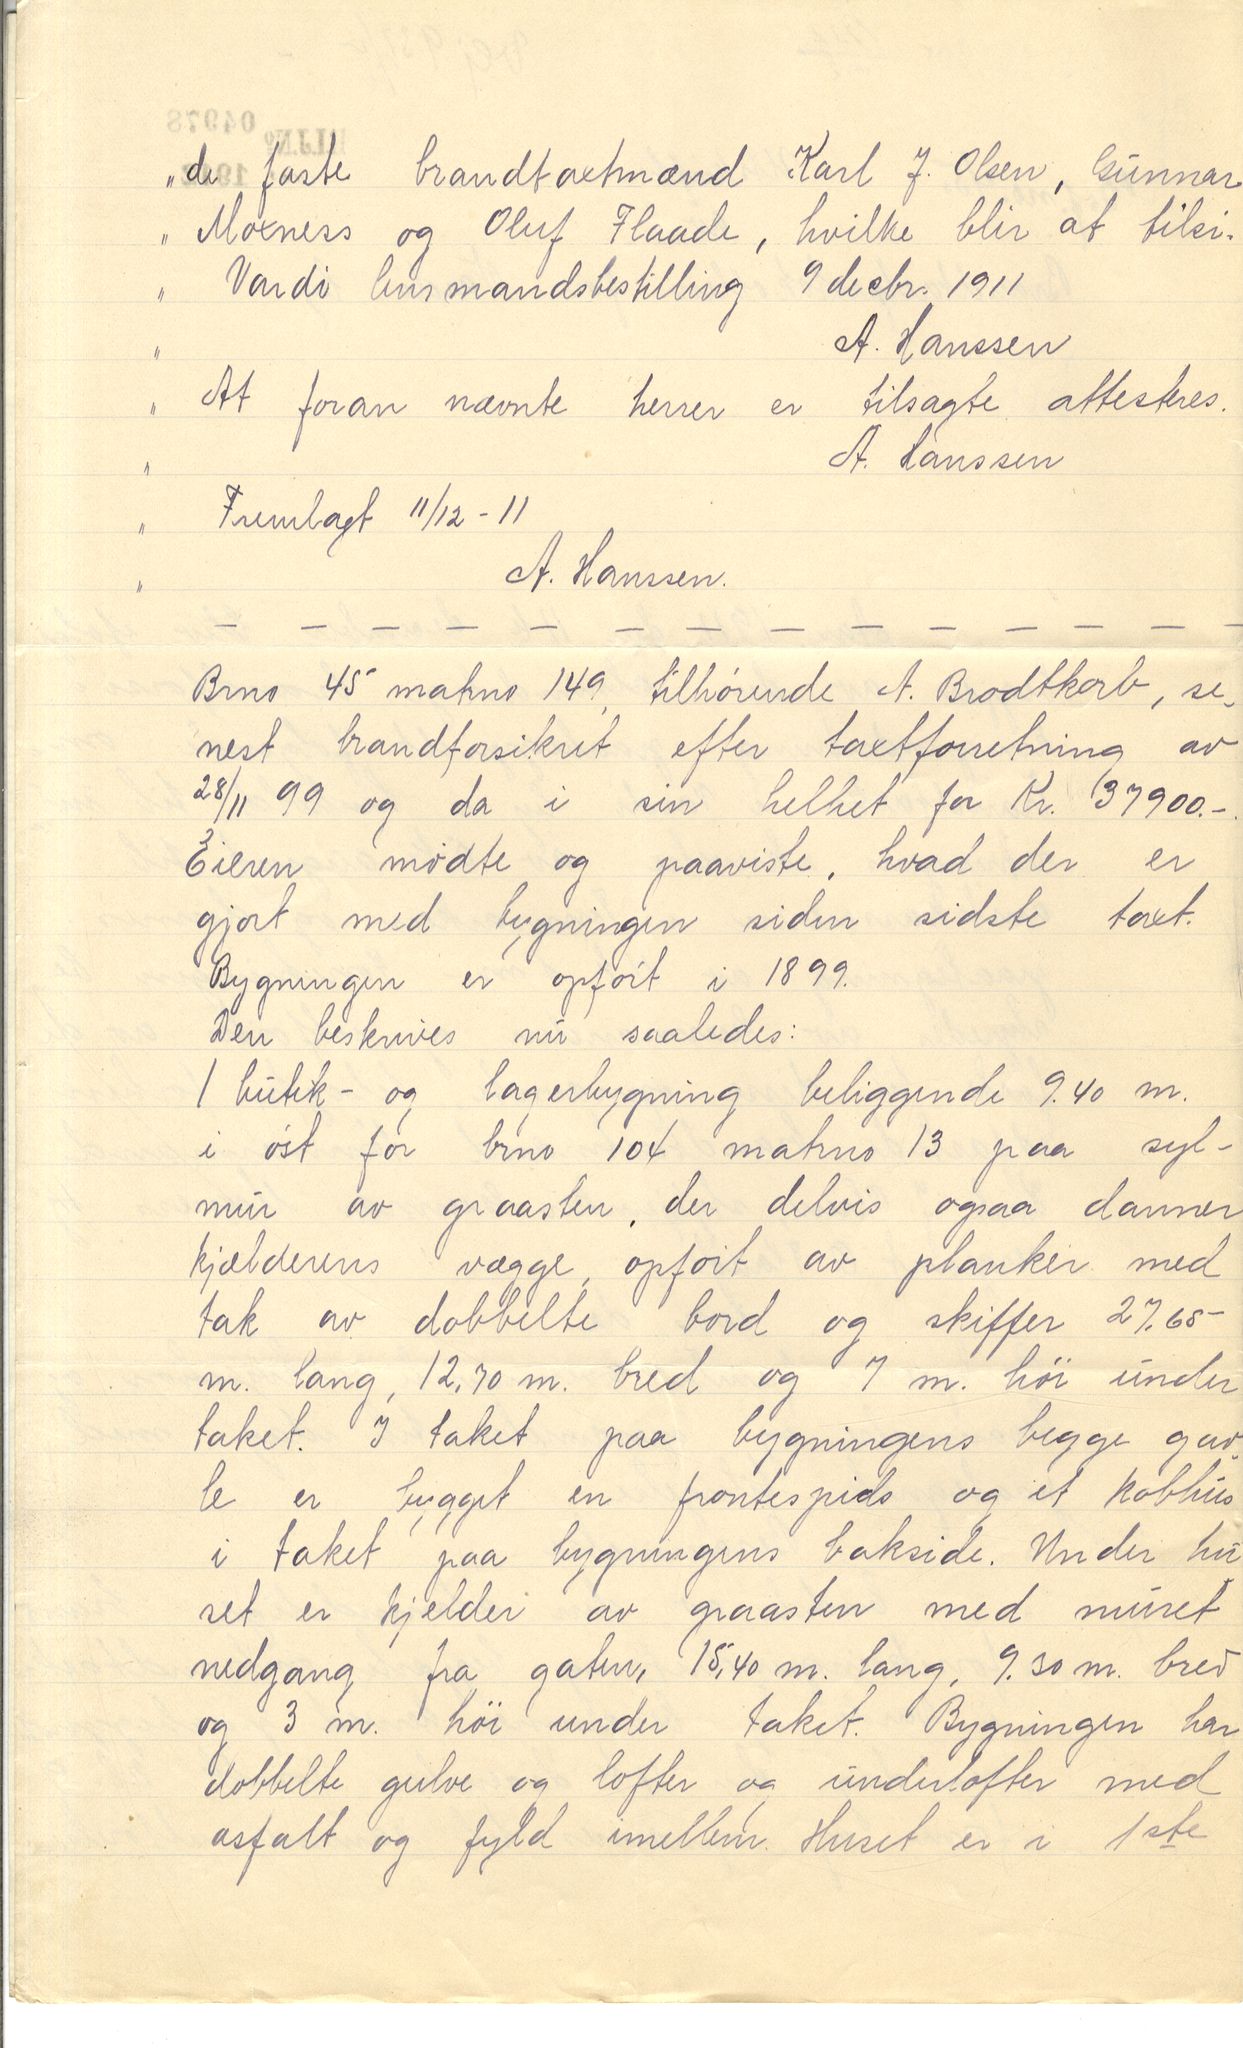 „ de faste brandtaxtmænd Karl J. Olsen, Gunnar
„ Moxness og Oluf Flaade, hvilke blir at tilsi.
„ Vardö lensmandsbestilling 9 decbr. 1911
„ A. Hanssen
„ At foran nævnte herrer er tilsagte attesteres.
„ A. Hanssen
„ Fremlagt 11/12 - 11
„ A. Hanssen.
Brno 45 matrno 149, tilhørende A. Brodtkorb, se-
nest brandforsikret efter taxtforretning av
28/11 99 og da i sin helhet for Kr. 37900.-.
Eieren mødte og paaviste, hvad der er
gjort med bygningen siden sidste taxt.
Bygningen er opført i 1899.
Den beskrives nu saaledes:
1 butik- og lagerbygning beliggende 9.40 m.
i øst for brno 104 matrno 13 paa syl-
mur av graasten, der delvis ogsaa danner
kjælderens vægge, opført av planker med
tak av dobbelte bord og skiffer 27.65
m. lang, 12,70 m. bred og 7 m. høi under
taket. I taket paa bygningens begge gav-
le er bygget en frontespids og et kobhus
i taket paa bygningens bakside. Under hu
set er kjelder av graasten med muret
nedgang fra gaten, 15,40 m. lang, 9.30 m. bred
og 3 m. høi under taket. Bygningen har
dobbelte gulve og lofter og underlofter med
asfalt og fyld imellem. Huset er i 1ste
04978